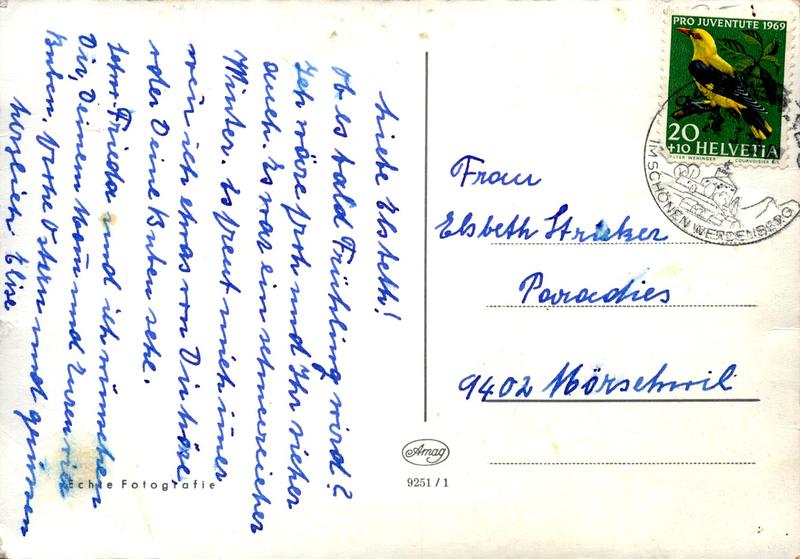 Liebe Elsbeth!
Ob es bald Frühling wird?
Ich wäre froh und Ihr sicher
auch. Es war ein schneereicher
Winter. Es freut mich imer
wen ich etwas von Dir höre
oder Deine Buben sehe.
Frieda und ich wünschen
Dir, Deinem Mann und Euren
Buben, frohe Ostern und grüssen
herzlich Elise
Echte Fotografie
Amag
9251 / 1
PRO JUVENTUTE 1969
20
+10 HELVETIA
COURVOISIER
IM SCHÖNEN WERDENBERG
Frau
Elsbeth Stricker
Paradies
9402 Mörschwil